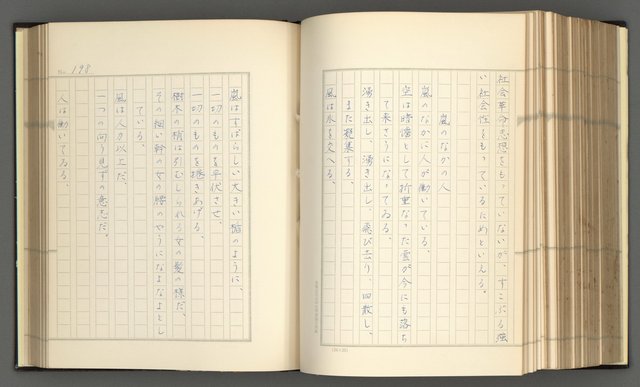 社会革命思想をもっていないが、すこぶる強
い社会性をもっているにめといえる。
嵐のなかの人
嵐のなかに人が働いている。
空は暗澹として折重なった雲が今にも落ち
て来さうになってゐる。
湧き出し、湧き出し、飛び去り、四散し、
また凝集する。
風は氷を交へる。
No. 198
嵐はすばらしい大きい箒のように、
一切のものを平伏させ、
一切のものを捲きあげる。
樹木の梢は引むしられる女の髪の様だ、
その細い幹の女の腰のやうになよなよとし
ている。
嵐は人力以上だ、
一つの向う見ずの意志だ。
人は働いてゐる、